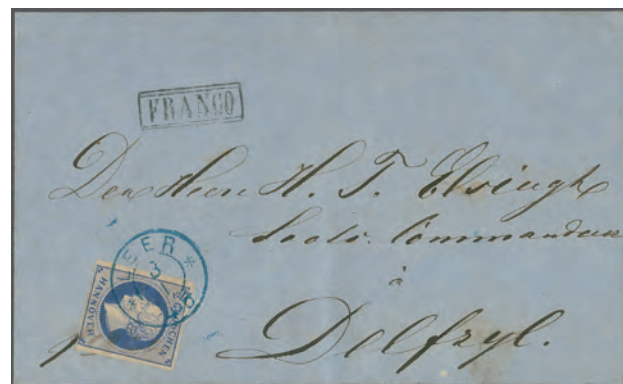 FRANCO
Den Heer H. T. Elsingh
Loods. Commandeur
à
Delfzyl.
LEER
3
HANNOVER
GROSCHEN